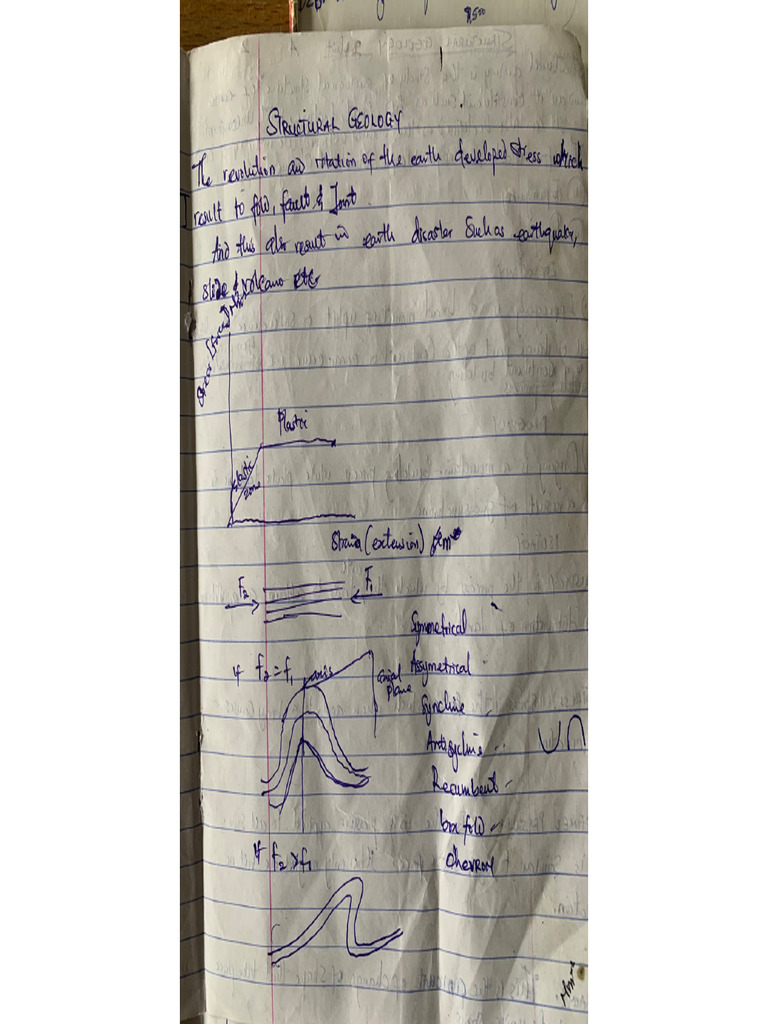 $500
STRUCTURAL GEOLOGY
The revolution and rotation of the earth developed stress which
result to fold, fault & Joint.
And this also result in earth disaster Such as earthquake,
slide & volcano etc
Stress
Plastic
Elastic
zone
Strain (extension)
F2
F1
Symmetrical
if f2 = f1
axis
axial
plane
Assymetrical
Syncline
Anticyline
Recumbent
box fold
CHEVRON
if f2 > f1